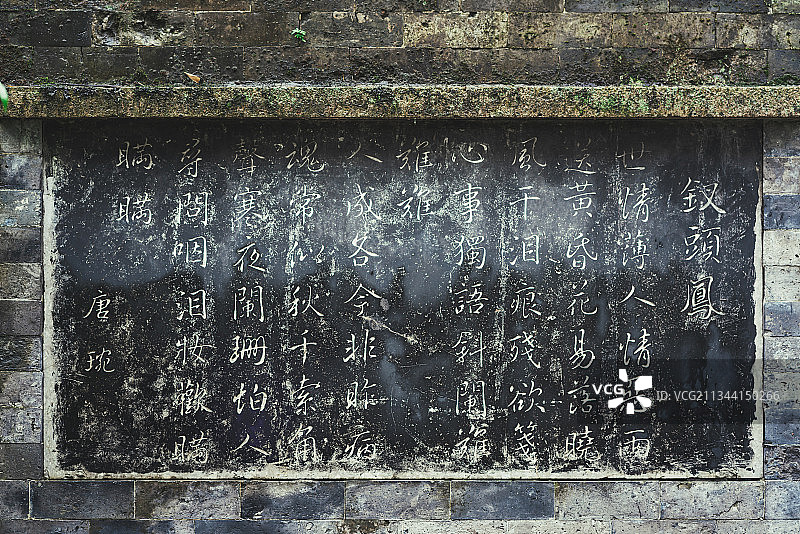 釵頭鳳
世情薄人情雨
送黄昏花易落曉
風干泪痕殘欲箋
心事獨語斜闌難
難難
人成各今非昨病
魂常似秋千索角
聲寒夜闌珊怕人
尋問咽泪妝歡瞞
瞞瞞
唐琬
VCG
VCG211344150266